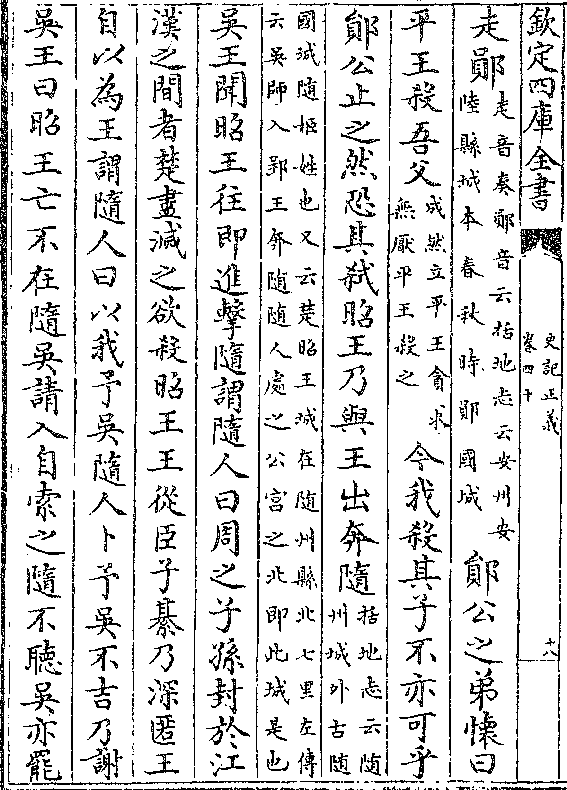 欽定四庫全書
史記正義
卷四十
十八
走鄖走音奏鄖音云括地志云安州安
陸縣城本春秋時鄖國城鄖公之弟懷曰
平王殺吾父成然立平王貪求
無厭平王殺之今我殺其子不亦可乎
鄖公止之然恐其弑昭王乃與王出奔隨括地志云隨
州城外古隨
國城隨姬姓也又云楚昭王城在随州縣北七里左傳
云吳師入郢王奔随随人處之公宫之北即此城是也
吳王聞昭王往即進擊隨謂隨人曰周之子孫封於江
漢之間者楚盡滅之欲殺昭王王從臣子綦乃深匿王
自以為王謂隨人曰以我予吳隨人卜予吳不吉乃謝
吳王曰昭王亡不在隨吳請入自索之隨不聽吳亦罷